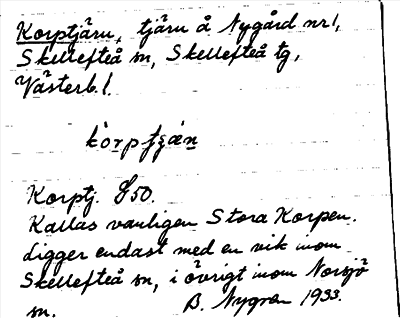 Korptjärn, tjärn å Nygård nr 1,
Skellefteå sn, Skellefteå tg,
Västerb. l.
Korptj. G50.
Kallas vanligen Stora Korpen.
Ligger endast med en vik inom
Skellefteå sn, i övrigt inom Norsjö
sn. B. Nygren 1933.